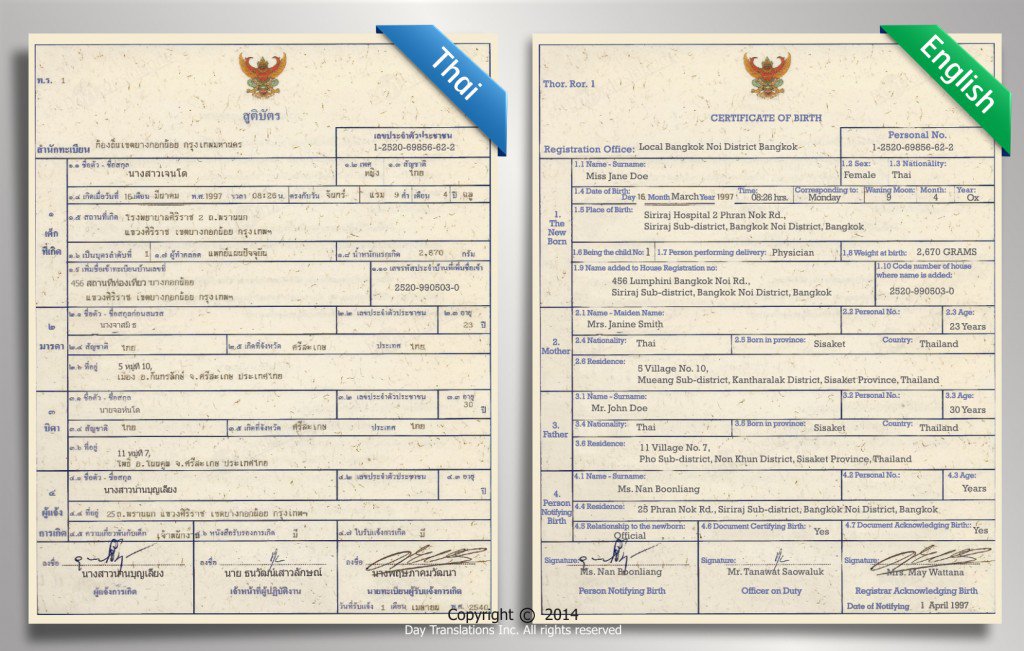 Thai
พ.ร. 1
สูติบัตร
เลขประจำตัวประชาชน
สำนักทะเบียน ท้องถิ่นเขตบางกอกน้อย กรุงเทพมหานคร
1-2520-69856-62-2
๑.๑ ชื่อตัว - ชื่อสกุล ๑.๒ เพศ ๑.๓ สัญชาติ
นางสาวเจนโด หญิง ไทย
๑.๔ เกิดเมื่อวันที่ 16 เดือน มีนาคม พ.ศ. 1997 เวลา 08:26 น. ตรงกับวัน จันทร์ แรม 9 ค่ำ เดือน 4 ปี ฉลู
๑.๕ สถานที่เกิด โรงพยาบาลศิริราช 2 ถ.พรานนก
แขวงศิริราช เขตบางกอกน้อย กรุงเทพฯ
๑ เด็กที่เกิด
๑.๖ เป็นบุตรลำดับที่ 1 ๑.๗ ผู้ทำคลอด แพทย์แผนปัจจุบัน ๑.๘ น้ำหนักแรกเกิด 2,670 กรัม
๑.๙ เพิ่มชื่อเข้าทะเบียนบ้านเลขที่ ๑.๑๐ เลขรหัสประจำบ้านที่เพิ่มชื่อเข้า
456 สถานที่ท่องเที่ยว บางกอกน้อย
แขวงศิริราช เขตบางกอกน้อย กรุงเทพฯ 2520-990503-0
๒.๑ ชื่อตัว - ชื่อสกุลก่อนสมรส ๒.๒ เลขประจำตัวประชาชน ๒.๓ อายุ
23 ปี
๒ มารดา
๒.๔ สัญชาติ ไทย ๒.๕ เกิดที่จังหวัด ศรีสะเกษ ประเทศ ไทย
๒.๖ ที่อยู่ 5 หมู่ที่ 10,
เมือง อ.กันทรลักษ์ จ.ศรีสะเกษ ประเทศไทย
๓.๑ ชื่อตัว - ชื่อสกุล ๓.๒ เลขประจำตัวประชาชน ๓.๓ อายุ
นายจอห์นโด 30 ปี
๓ บิดา
๓.๔ สัญชาติ ไทย ๓.๕ เกิดที่จังหวัด ศรีสะเกษ ประเทศ ไทย
๓.๖ ที่อยู่ 11 หมู่ที่ 7,
โพธิ์ อ.โนนคูณ จ.ศรีสะเกษ ประเทศไทย
๔.๑ ชื่อตัว - ชื่อสกุล ๔.๒ เลขประจำตัวประชาชน ๔.๓ อายุ
นางสาวน่านบุญเลียง ปี
๔ ผู้แจ้งการเกิด
๔.๔ ที่อยู่ 25 ถ.พรานนก แขวงศิริราช เขตบางกอกน้อย กรุงเทพฯ
๔.๕ ความเกี่ยวพันกับเด็ก เจ้าพนักงาน ๔.๖ หนังสือรับรองการเกิด มี ๔.๗ ใบรับแจ้งการเกิด มี
ลงชื่อ ลงชื่อ ลงชื่อ
นางสาวน่านบุญเลียง นาย ธนวัฒน์เสาวลักษณ์ นางพฤษภาคมวัฒนา
ผู้แจ้งการเกิด เจ้าหน้าที่ผู้ปฏิบัติงาน นายทะเบียนผู้รับแจ้งการเกิด
วันที่รับแจ้ง 1 เดือน เมษายน พ.ศ. 2540
English
Thor. Ror. 1
CERTIFICATE OF BIRTH
Personal No.
Registration Office: Local Bangkok Noi District Bangkok
1-2520-69856-62-2
1.1 Name - Surname: 1.2 Sex: 1.3 Nationality:
Miss Jane Doe Female Thai
1.4 Date of Birth: Time: Corresponding to: Waning Moon: Month: Year:
Day 16 Month March Year 1997 08:26 hrs. Monday 9 4 Ox
1. The New Born
1.5 Place of Birth: Siriraj Hospital 2 Phran Nok Rd.,
Siriraj Sub-district, Bangkok Noi District, Bangkok
1.6 Being the child No: 1 1.7 Person performing delivery: Physician 1.8 Weight at birth: 2,670 GRAMS
1.9 Name added to House Registration no: 1.10 Code number of house where name is added:
456 Lumphini Bangkok Noi Rd.,
Siriraj Sub-district, Bangkok Noi District, Bangkok 2520-990503-0
2.1 Name - Maiden Name: 2.2 Personal No.: 2.3 Age:
Mrs. Janine Smith 23 Years
2. Mother
2.4 Nationality: Thai 2.5 Born in province: Sisaket Country: Thailand
2.6 Residence:
5 Village No. 10,
Mueang Sub-district, Kantharalak District, Sisaket Province, Thailand
3.1 Name - Surname: 3.2 Personal No.: 3.3 Age:
Mr. John Doe 30 Years
3. Father
3.4 Nationality: Thai 3.5 Born in province: Sisaket Country: Thailand
3.6 Residence: 11 Village No. 7,
Pho Sub-district, Non Khun District, Sisaket Province, Thailand
4.1 Name - Surname: 4.2 Personal No.: 4.3 Age:
Ms. Nan Boonliang Years
4. Person Notifying Birth
4.4 Residence: 25 Phran Nok Rd., Siriraj Sub-district, Bangkok Noi District, Bangkok
4.5 Relationship to the newborn: Official 4.6 Document Certifying Birth: Yes 4.7 Document Acknowledging Birth: Yes
Signature: Signature: Signature:
Ms. Nan Boonliang Mr. Tanawat Saowaluk Mrs. May Wattana
Person Notifying Birth Officer on Duty Registrar Acknowledging Birth
Date of Notifying 1 April 1997
Copyright © 2014
Day Translations Inc. All rights reserved